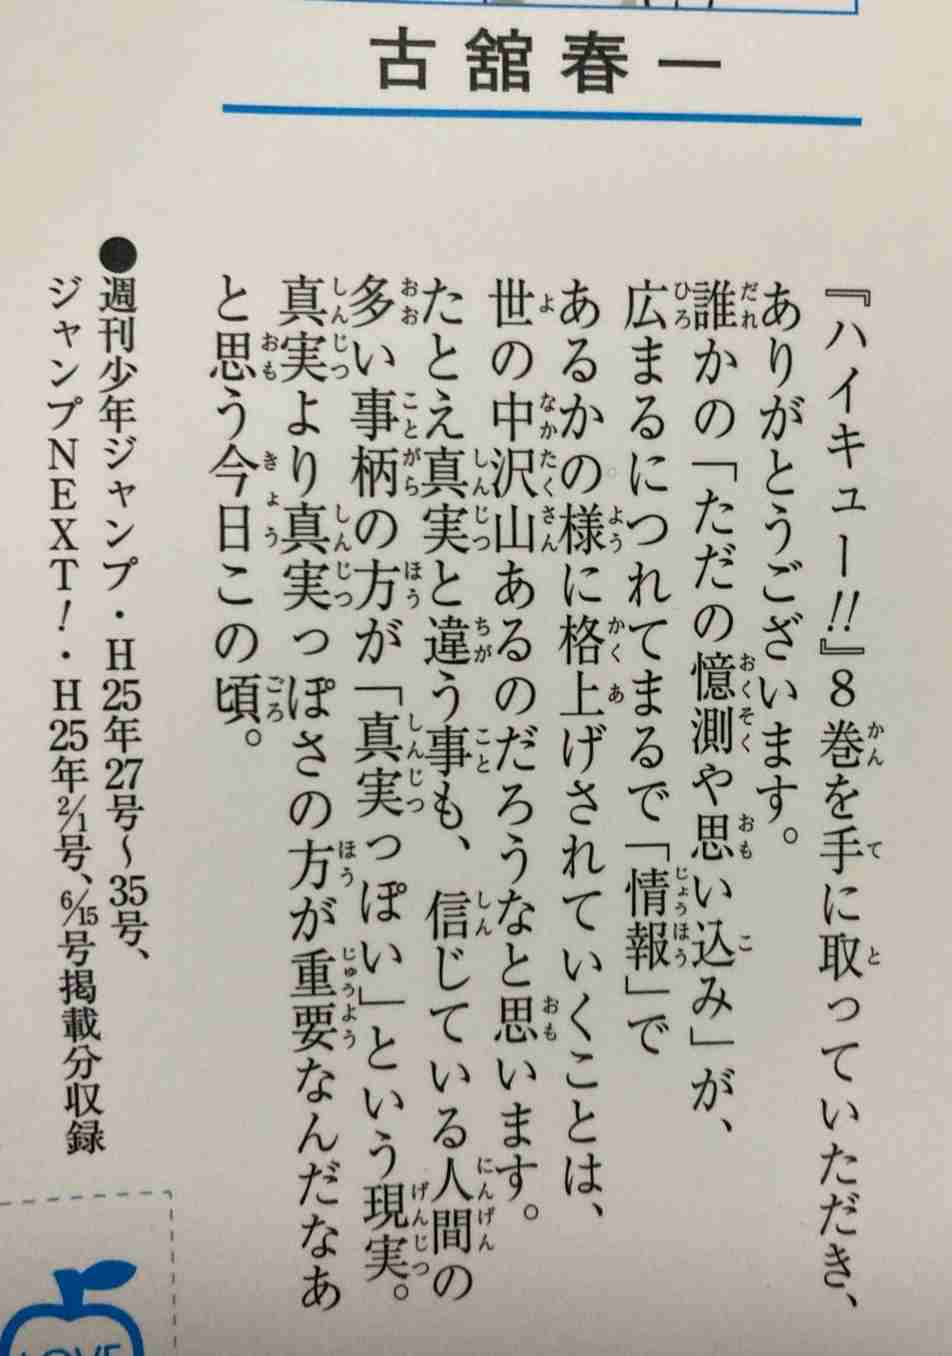 古舘春一
『ハイキュー!!』8巻を手に取っていただき、
ありがとうございます。
誰かの「ただの憶測や思い込み」が、
広まるにつれてまるで「情報」で
あるかの様に格上げされていくことは、
世の中沢山あるのだろうなと思います。
たとえ真実と違う事も、信じている人間の
多い事柄の方が「真実っぽい」という現実。
真実より真実っぽさの方が重要なんだなあ
と思う今日この頃。
●週刊少年ジャンプ・H25年27号～35号、
ジャンプNEXT!・H25年2/1号、6/15号掲載分収録
LOVE